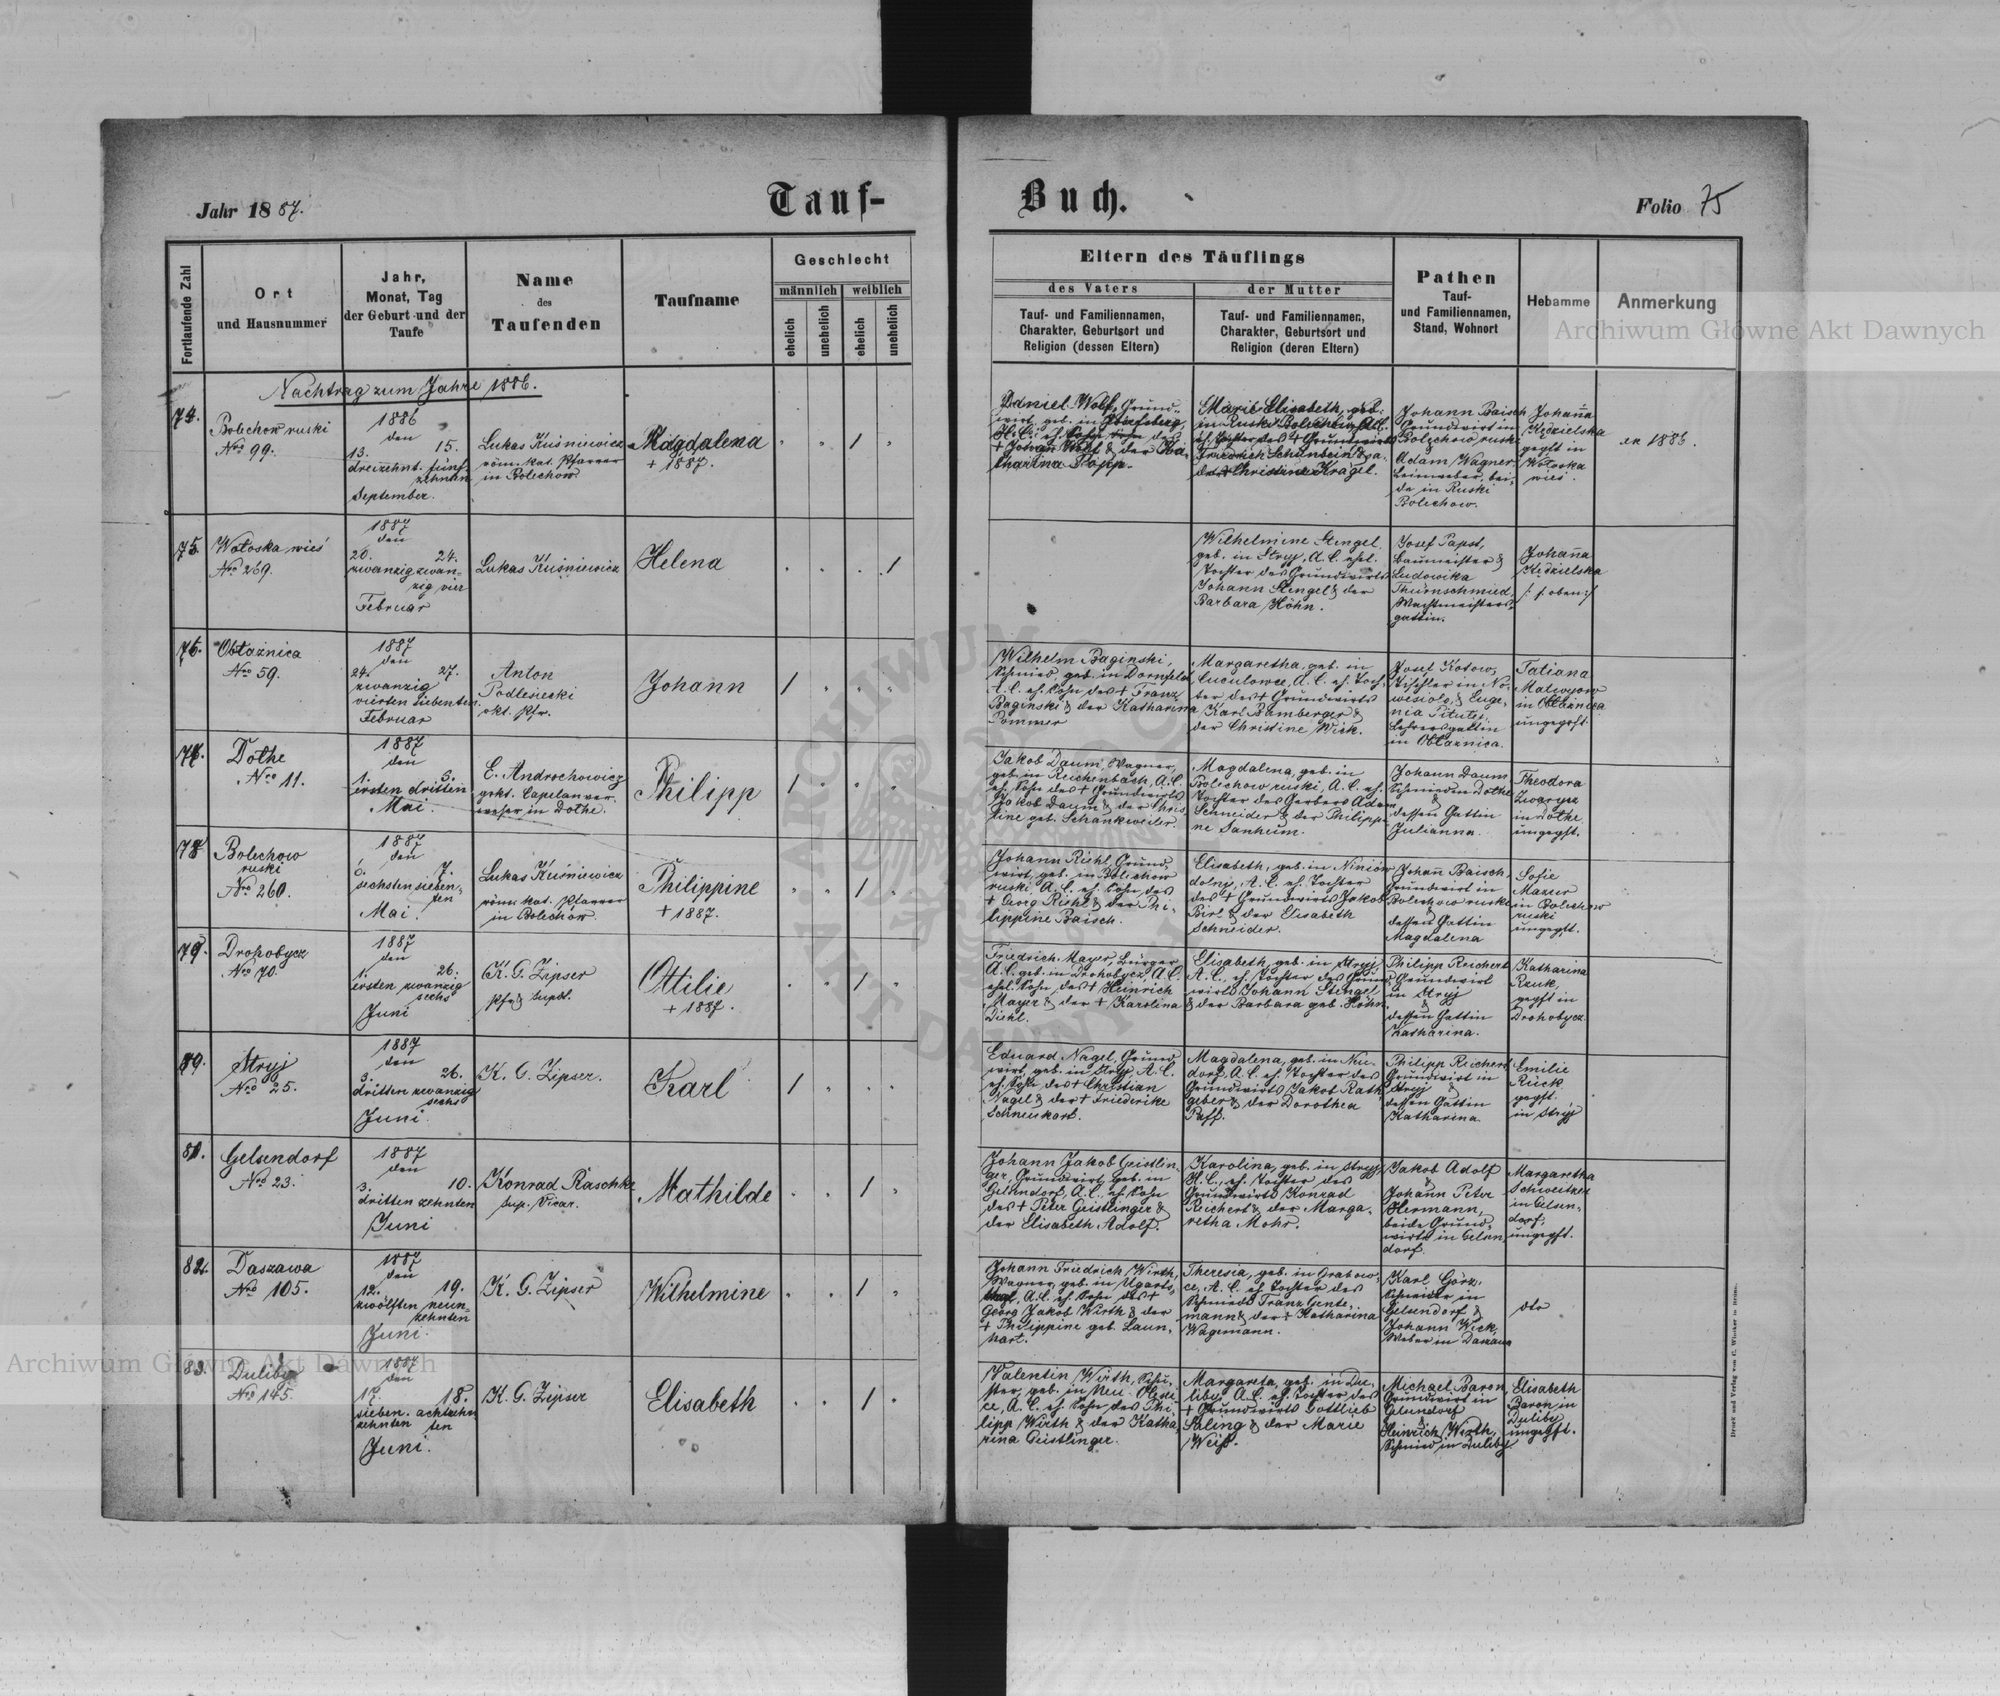 Jahr 1887.
Tauf-
Buch.
Folio 75
Fortlaufende Zahl
Ort
und Hausnummer
Jahr,
Monat, Tag
der Geburt und der
Taufe
Name
des
Taufenden
Taufname
Geschlecht
männlich
weiblich
ehelich
unehelich
ehelich
unehelich
Eltern des Täuflings
des Vaters
der Mutter
Tauf- und Familiennamen,
Charakter, Geburtsort und
Religion (dessen Eltern)
Tauf- und Familiennamen,
Charakter, Geburtsort und
Religion (deren Eltern)
Pathen
Tauf-
und Familiennamen,
Stand, Wohnort
Hebamme
Anmerkung
Nachtrag zum Jahre 1886.
74.
Bolechow ruski
Nro 99.
1886
den
13. 15.
dreizehnt. fünf-
zehnten
September.
Lukas Kuśniewicz
röm. kat. Pfarrer
in Bolechow.
Magdalena
+ 1887.
1
Daniel Wolf, Grund-
wirt, geb. in Josefsberg,
+ Johann Wolf & der Ka-
tharina Popp.
Marie Elisabeth, geb.
in Ruski Bolechow, A.C.
eh. Tochter des + Grundwirts
Friedrich Schönbein &
der + Christine Kragel.
Johann Baisch
Grundwirt in
Bolechow ruski
&
Adam Wagner
Leinweber, bei-
de in Ruski
Bolechow.
Johanna
Kędzielska
geprft in
Wołoska
wieś.
1886.
75.
Wołoska wieś
Nro 269.
1887
den
20. 24.
zwanzig zwan-
zig vier
Februar
Lukas Kuśniewicz
Helena
1
Wilhelmine Stengel
geb. in Stryj, A.C. ehel.
Tochter des Grundwirts
Johann Stengel & der
Barbara Höhn.
Josef Papst,
Baumeister &
Ludowika
Thurnschmied,
Wachtmeisters-
gattin.
Johanna
Kędzielska
/: s. oben :/
76.
Obłaźnica
Nro 59.
1887
den
24. 27.
zwanzig
vierten siebenten
Februar
Anton
Podlesiecki
rkt. Pfr.
Johann
1
Wilhelm Baginski,
Schmied, geb. in Dornfeld
A.C. eh. Sohn des + Franz
Baginski & der Katharina
Pommer
Margaretha, geb. in
Cuculowce, A.C. eh. Toch-
ter des + Grundwirts
Karl Bamberger &
der Christine Wick.
Josef Kotow,
Tischler in No-
wesiolo, & Euge-
nia Pitulej,
Lehrersgattin
in Obłaznica.
Tatiana
Matwijow
in Obłaźnica
ungeprft.
77.
Dołhe
Nro 11.
1887
den
1. 3.
ersten dritten
Mai.
E. Androchowicz
grkt. Capelanver-
weser in Dołhe.
Philipp
1
Jakob Daum, Wagner,
geb. in Reichenbach, A.C.
eh. Sohn des + Grundwirts
Jakob Daum & der Chris-
tine geb. Schankweiler.
Magdalena, geb. in
Bolechow ruski, A.C. eh.
Tochter des Gerbers Adam
Schneider & der Philippi-
ne Sanheim.
Johann Daum
Schmied in Dołhe
&
dessen Gattin
Julianna.
Theodora
Zwarycz
in Dołhe
ungeprft.
78
Bolechow
ruski
Nro 260.
1887
den
6. 7.
sechsten sieben-
ten
Mai.
Lukas Kuśniewicz
röm. kat. Pfarrer
in Bolechów.
Philippine
+ 1887.
1
Johann Riehl, Grund-
wirt, geb. in Bolechow
ruski, A.C. eh. Sohn des
+ Georg Riehl & der Phi-
lippine Baisch.
Elisabeth, geb. in Niniów
dolny, A.C. eh. Tochter
des + Grundwirts Jakob
Birl & der Elisabeth
Schneider.
Johann Baisch,
Grundwirt in
Bolechow ruski
&
dessen Gattin
Magdalena
Sofie
Mazur
in Bolechow
ruski
ungeprft.
79.
Drohobycz
Nro 70.
1887
den
1. 26.
ersten zwanzig
sechs
Juni
K. G. Zipser
Pfr & Supdt.
Ottilie
+ 1887.
1
Friedrich Mayer, Bürger
A.C. geb. in Drohobycz, A.C.
ehel. Sohn des + Heinrich
Mayer & der + Karolina
Diehl.
Elisabeth, geb. in Stryj
A.C., eh. Tochter des Grund-
wirts Johann Stengel
& der Barbara geb. Höhn
Philipp Reichert
Grundwirt
in Stryj
&
dessen Gattin
Katharina.
Katharina
Rzuk,
geprft in
Drohobycz
Stryj
Nro 25.
1887
den
3. 26.
dritten zwanzig
sechs
Juni.
K. G. Zipser.
Karl
1
Eduard Nagel, Grund-
wirt, geb. in Stryj, A.C.
eh. Sohn des + Christian
Nagel & der + Friederike
Schneikart.
Magdalena, geb. in Neu-
dorf, A.C. eh. Tochter des
Grundwirts Jakob Rath-
geber & der Dorothea
Paff.
Philipp Reichert
Grundwirt in
Stryj &
dessen Gattin
Katharina
Emilie
Rück
geprft.
in Stryj
81.
Gelsendorf
Nro 23.
1887
den
3. 10.
dritten zehnten
Juni
Konrad Raschke
sup. Vicar.
Mathilde
1
Johann Jakob Geistlin-
ger, Grundwirt, geb. in
Gelsendorf, A.C., eh. Sohn
des + Peter Geistlinger &
der Elisabeth Adolf.
Karolina, geb. in Stryj
H.C., eh. Tochter des
Grundwirts Konrad
Reichert & der Marga-
retha Mohr.
Jakob Adolf
&
Johann Peter
Hermann,
beide Grund-
wirte in Gelsen-
dorf.
Margaretha
Schweitzer
in Gelsen-
dorf,
ungeprft.
82.
Daszawa
Nro 105.
1887
den
12. 19.
zwölften neun-
zehnten
Juni.
K. G. Zipser
Wilhelmine
1
Johann Friedrich Wirth,
Wagner, geb. in Ugarts-
A.C. eh. Sohn des +
Georg Jakob Wirth & der
+ Philippine geb. Laun-
hart.
Theresia, geb. in Grabow-
ce, A.C. eh. Tochter des
Schmieds Franz Gente-
mann & der + Katharina
Wagemann.
Karl Görz,
Schneider in
Gelsendorf &
Johann Wick,
Weber in Daszawa
dto
83.
Duliby
Nro 145.
1887
den
17. 18.
sieben- achtzehn
zehnten ten
Juni.
K. G. Zipser
Elisabeth
1
Valentin Wirth, Schu-
ster, geb. in Neu-Olexi-
ce, A.C. eh. Sohn des Phi-
lipp Wirth & der Katha-
rina Geistlinger.
Margareta, geb. in Du-
liby, A.C. eh. Tochter des
+ Grundwirts Gottlieb
Saling & der Marie
Weiß.
Michael Baron,
Grundwirt in
Gelsendorf
&
Heinrich Wirth,
Schmied in Duliby
Elisabeth
Baron in
Duliby
ungeprft.
Druck und Verlag von C. Winiker in Brünn.
Archiwum Główne Akt Dawnych
Archiwum Główne Akt Dawnych
ARCHIWUM GŁÓWNE AKT DAWNYCH